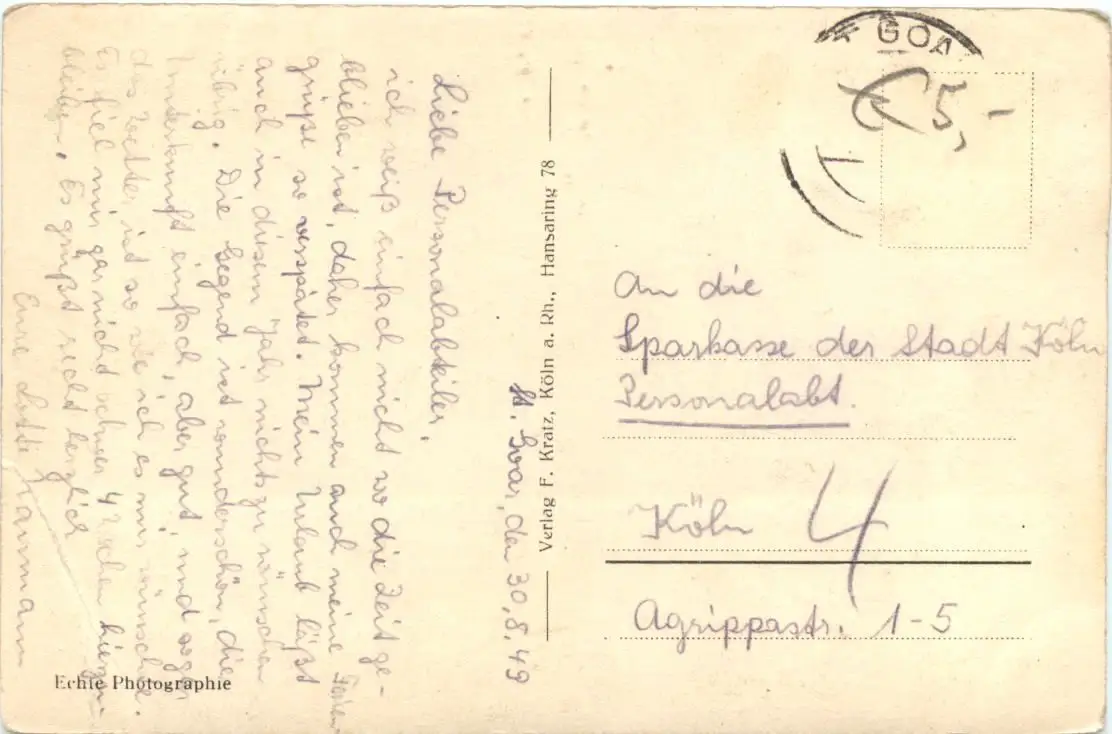 St. Goar, den 30.8.49
Liebe Personalabteiler,
ich weiß einfach nicht wo die Zeit ge-
blieben ist, daher kommen auch meine Ferien
grüße so verspätet. Mein Urlaub läßt
auch in diesem Jahr nichts zu wünschen
übrig. Die Gegend ist wunderschön, die
Unterkunft einfach, aber gut, und sogar
das Wetter ist so wie ich es mir wünsche.
Es fiel mir gar nicht schwer 4 Wochen hierzu-
bleiben. Es grüßt recht herzlich
Eure Lotti
Echte Photographie
Verlag F. Kratz, Köln a. Rh., Hansaring 78
GOA
€ 5,-
An die
Sparkasse der Stadt Köln
Personalabt.
Köln 4
Agrippastr. 1-5